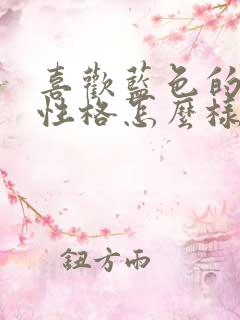 喜歡藍色的
性格怎麼樣
鈕方雨